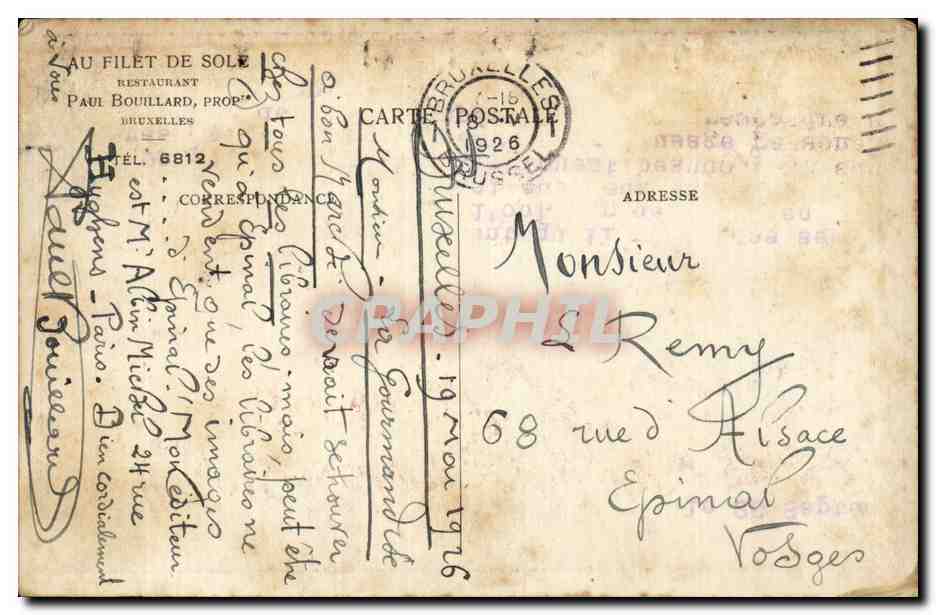 AU FILET DE SOLE
RESTAURANT
PAUL BOUILLARD, PROP.
BRUXELLES
TÉL. 6812
CARTE POSTALE
CORRESPONDANCE
ADRESSE
BRUXELLES
1926
BRUSSEL
Bruxelles. 19 Mai 1926
Monsieur - La Gourmandise
à bon Marché devrait se trouver
chez tous les libraires. mais, peut être
qu'à Epinal, les libraires ne
vendent que des images
d'Epinal. Mon éditeur
est Mr Albin Michel 24 rue
Huyghens - Paris. Bien cordialement
à vous
Paul Bouillard
Monsieur
L Remy
68 rue d'Alsace
Epinal
Vosges
CPAPHIL